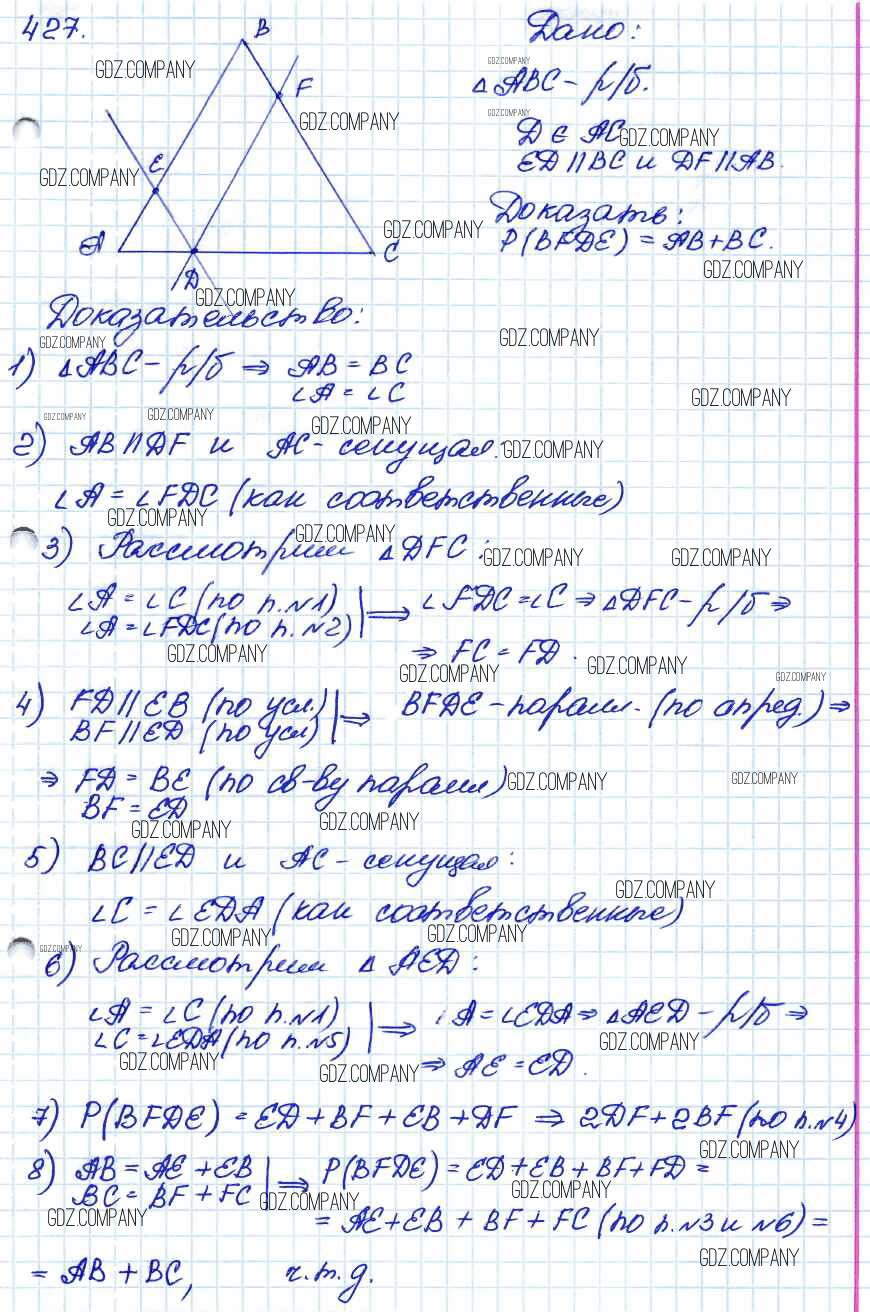 427.
B
F
E
A
D
C
Дано:
△ABC – р/б.
D ∈ AC
ED || BC и DF || AB.
Доказать:
P(BFDE) = AB + BC.
Доказательство:
1) △ABC – р/б ⇒ AB = BC
∠A = ∠C
2) AB || DF и AC – секущая:
∠A = ∠FDC (как соответственные)
3) Рассмотрим △DFC:
∠A = ∠C (по п.№1) | ⇒ ∠FDC = ∠C ⇒ △DFC – р/б ⇒
∠A = ∠FDC (по п.№2)
⇒ FC = FD.
4) FD || EB (по усл.) | ⇒ BFDE – паралл. (по опред.) ⇒
BF || ED (по усл)
⇒ FD = BE (по св-ву паралл)
BF = ED
5) BC || ED и AC – секущая:
∠C = ∠EDA (как соответственные)
6) Рассмотрим △AED:
∠A = ∠C (по п.№1) | ⇒ ∠A = ∠EDA ⇒ △AED – р/б ⇒
∠C = ∠EDA (по п.№5)
⇒ AE = ED.
7) P(BFDE) = ED + BF + EB + DF ⇒ 2DF + 2BF (по п.№4)
8) AB = AE + EB | ⇒ P(BFDE) = ED + EB + BF + FD =
BC = BF + FC
= AE + EB + BF + FC (по п.№3 и №6) =
= AB + BC, ч.т.д.
GDZ.COMPANY